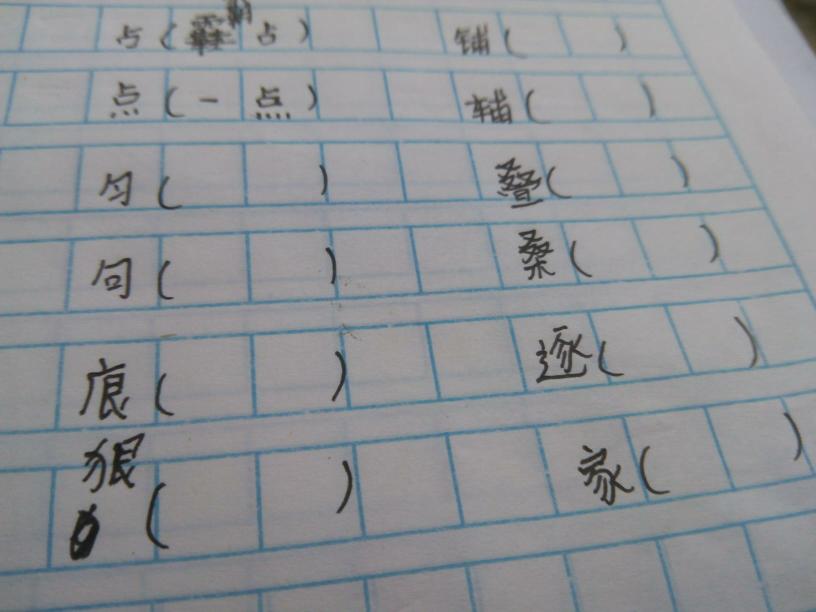 占(霸占) 铺( )
点(一点) 辅( )
匀( ) 叠( )
句( ) 桑( )
痕( ) 逐( )
狠( ) 家( )